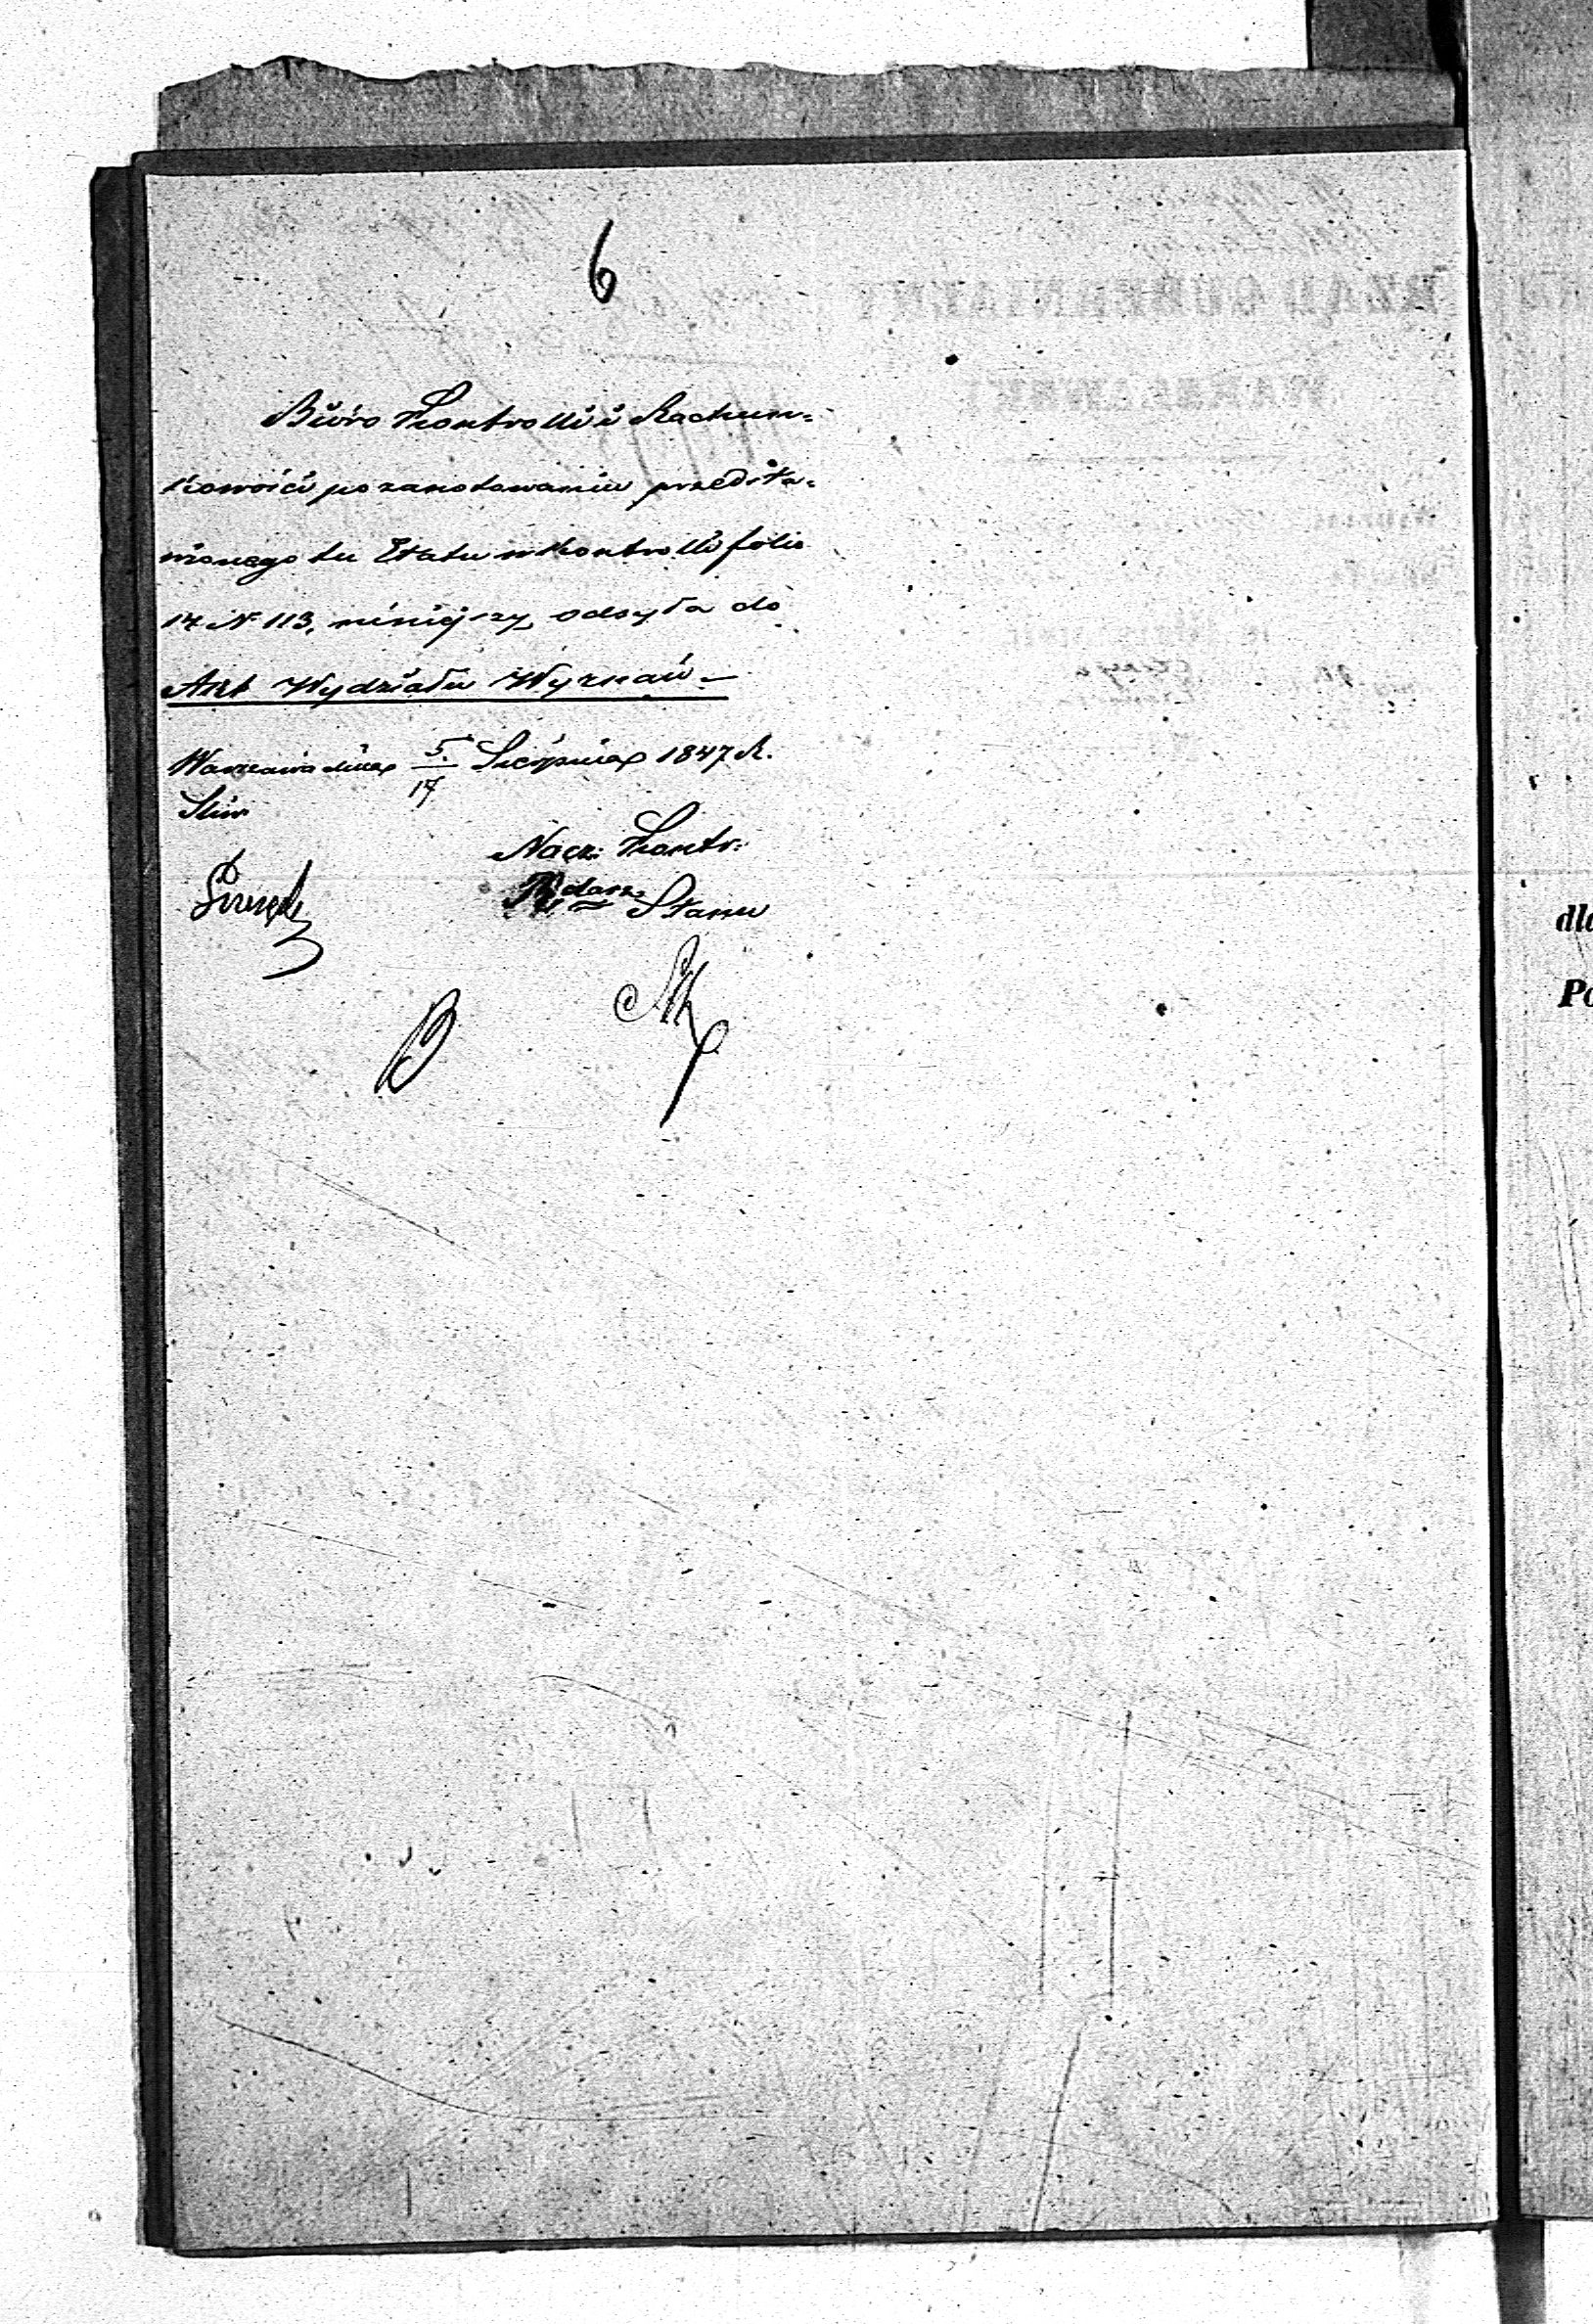 6
Biuro Kontrolli i Rachun=
kowości po zanotowaniu przedsta=
wionego tu Etatu w Kontrolli folio
14 N 113, niniejszy odsyła do
Akt Wydziału Wyznań –
Warszawa dnia 5/17 Sierpnia 1847 R.
Nacz: Kontr:
Stanu
dla
Po